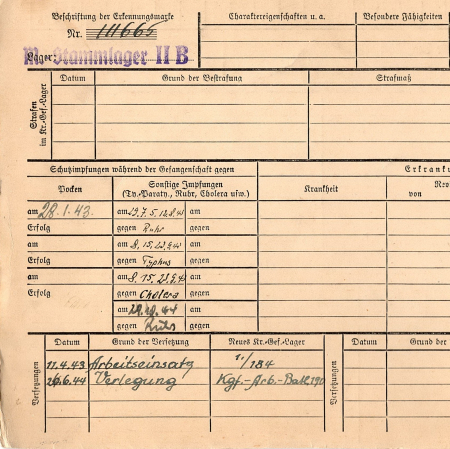 Beschriftung der Erkennungsmarke
Nr. 111665
Lager: M.-Stammlager II B
Charaktereigenschaften u. a.
Besondere Fähigkeiten
Strafen im Kr.-Gef.-Lager
Datum Grund der Bestrafung Strafmaß
Schutzimpfungen während der Gefangenschaft gegen
Erkrank
Pocken
Sonstige Impfungen
(Ty.-Paraty., Ruhr, Cholera usw.)
Krankheit
von
am 28.1.43.
am am
Erfolg gegen Ruhr gegen
am am 8. 15. am
Erfolg gegen Typhus gegen
am am 8. 15. am
Erfolg gegen Cholera gegen
am am
gegen Ruhr gegen
Versetzungen
Datum Grund der Versetzung Neues Kr.-Gef.-Lager
11.4.43 Arbeitseinsatz 184
20.6.44 Verlegung Kgf.-Arb.-Batl. 190
Versetzungen
Datum Grund der